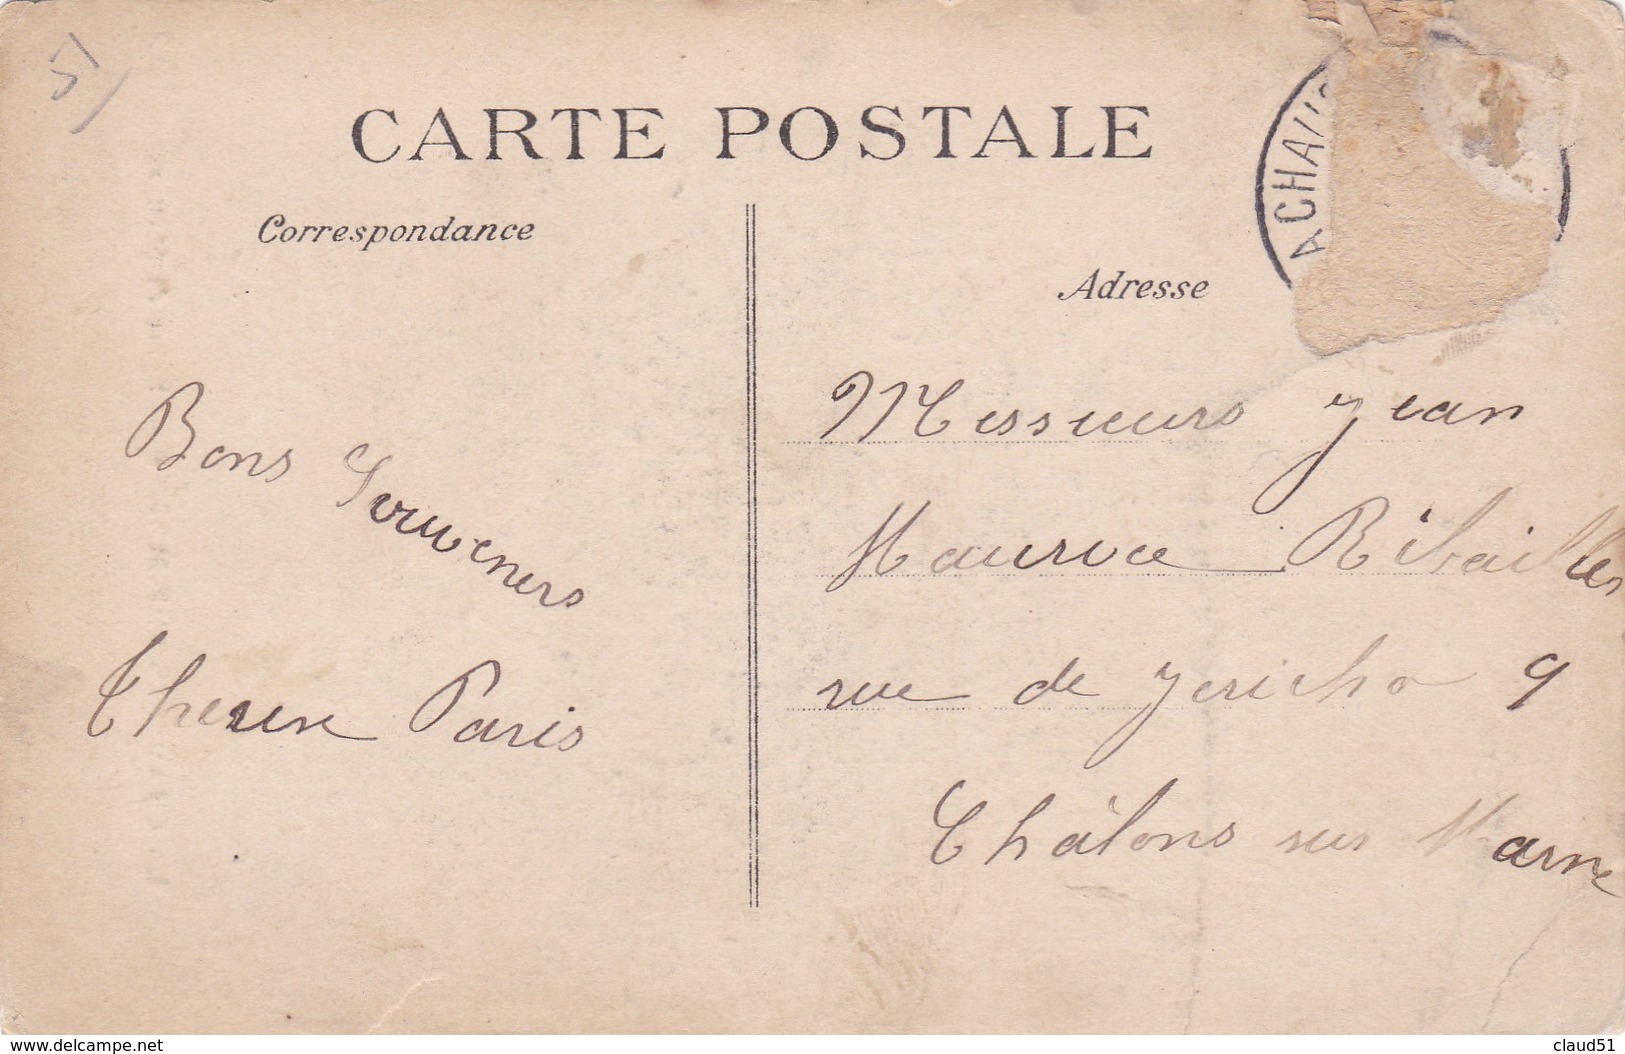 51
CARTE POSTALE
Correspondance
Adresse
ACHA
Bons Souveners
Therese Paris
Messieurs Jean
Maurice Ribailles
rue de Jericho 9
Châlons sur Marne
www.delcampe.net
claud51